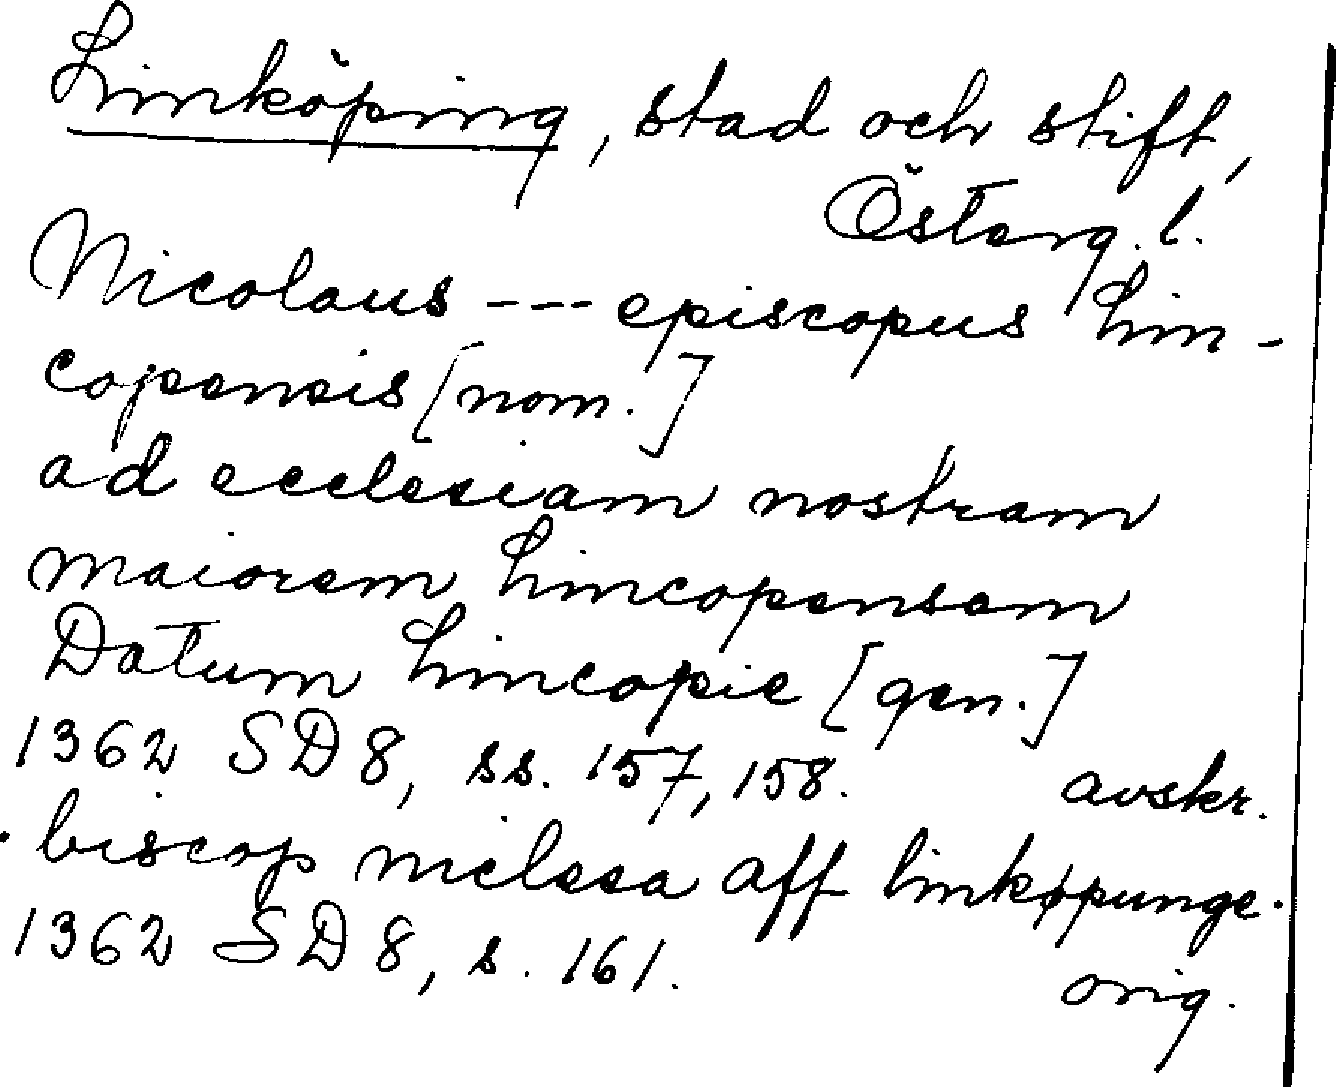 Linköping, stad och stift,
Österg. l.
Nicolaus --- episcopus Lin-
copensis [nom.]
ad ecclesiam nostram
maiorem Lincopensem
Datum Lincopie [gen.]
1362 SD 8, ss. 157, 158. avskr.
biscop niclssa aff linkøpunge.
1362 SD 8, s. 161. orig.